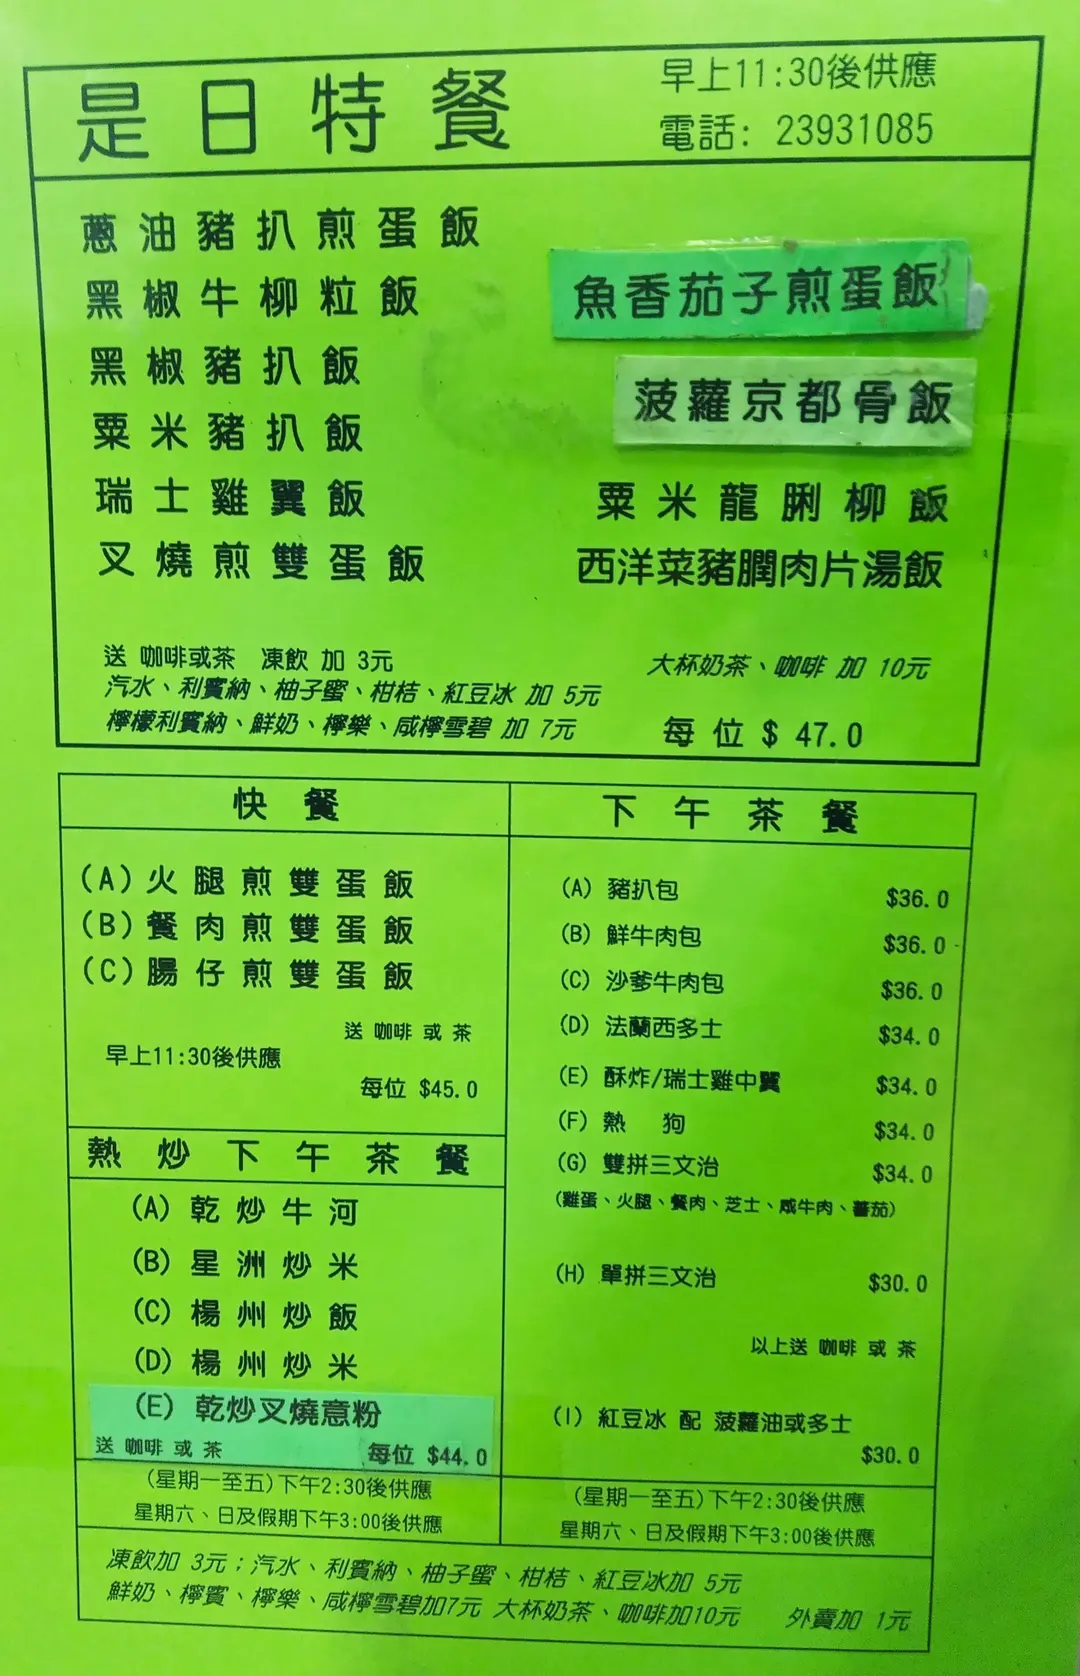 是日特餐
早上11:30後供應
電話: 23931085
蔥油豬扒煎蛋飯
黑椒牛柳粒飯
黑椒豬扒飯
粟米豬扒飯
瑞士雞翼飯
叉燒煎雙蛋飯
魚香茄子煎蛋飯
菠蘿京都骨飯
粟米龍脷柳飯
西洋菜豬膶肉片湯飯
送 咖啡或茶 凍飲 加 3元
汽水、利賓納、柚子蜜、柑桔、紅豆冰 加 5元
檸檬利賓納、鮮奶、檸樂、咸檸雪碧 加 7元
大杯奶茶、咖啡 加 10元
每位 $ 47.0
快餐
(A) 火腿煎雙蛋飯
(B) 餐肉煎雙蛋飯
(C) 腸仔煎雙蛋飯
送 咖啡 或 茶
早上11:30後供應
每位 $45.0
熱炒下午茶餐
(A) 乾炒牛河
(B) 星洲炒米
(C) 楊州炒飯
(D) 楊州炒米
(E) 乾炒叉燒意粉
送 咖啡 或 茶 每位 $44.0
(星期一至五)下午2:30後供應
星期六、日及假期下午3:00後供應
下午茶餐
(A) 豬扒包 $36.0
(B) 鮮牛肉包 $36.0
(C) 沙爹牛肉包 $36.0
(D) 法蘭西多士 $34.0
(E) 酥炸/瑞士雞中翼 $34.0
(F) 熱 狗 $34.0
(G) 雙拼三文治 $34.0
(雞蛋、火腿、餐肉、芝士、咸牛肉、蕃茄)
(H) 單拼三文治 $30.0
以上送 咖啡 或 茶
(I) 紅豆冰 配 菠蘿油或多士
$30.0
(星期一至五)下午2:30後供應
星期六、日及假期下午3:00後供應
凍飲加 3元；汽水、利賓納、柚子蜜、柑桔、紅豆冰加 5元
鮮奶、檸賓、檸樂、咸檸雪碧加7元 大杯奶茶、咖啡加10元 外賣加 1元